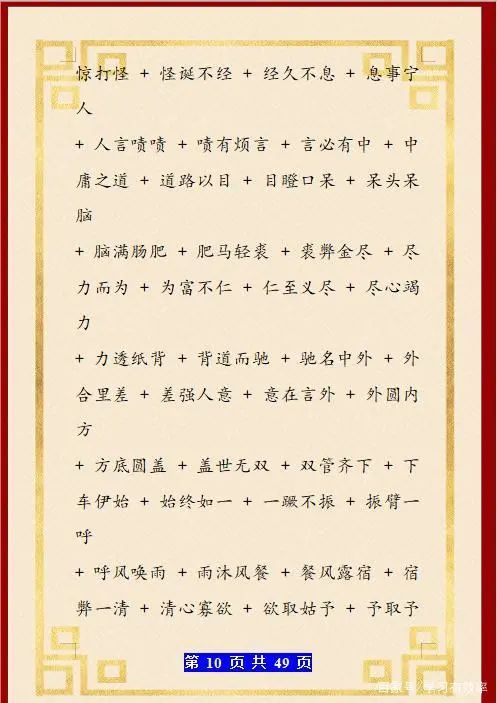 惊打怪 + 怪诞不经 + 经久不息 + 息事宁
人
+ 人言啧啧 + 啧有烦言 + 言必有中 + 中
庸之道 + 道路以目 + 目瞪口呆 + 呆头呆
脑
+ 脑满肠肥 + 肥马轻裘 + 裘弊金尽 + 尽
力而为 + 为富不仁 + 仁至义尽 + 尽心竭
力
+ 力透纸背 + 背道而驰 + 驰名中外 + 外
合里差 + 差强人意 + 意在言外 + 外圆内
方
+ 方底圆盖 + 盖世无双 + 双管齐下 + 下
车伊始 + 始终如一 + 一蹶不振 + 振臂一
呼
+ 呼风唤雨 + 雨沐风餐 + 餐风露宿 + 宿
弊一清 + 清心寡欲 + 欲取姑予 + 予取予
第 10 页 共 49 页
百家号/学习有效率